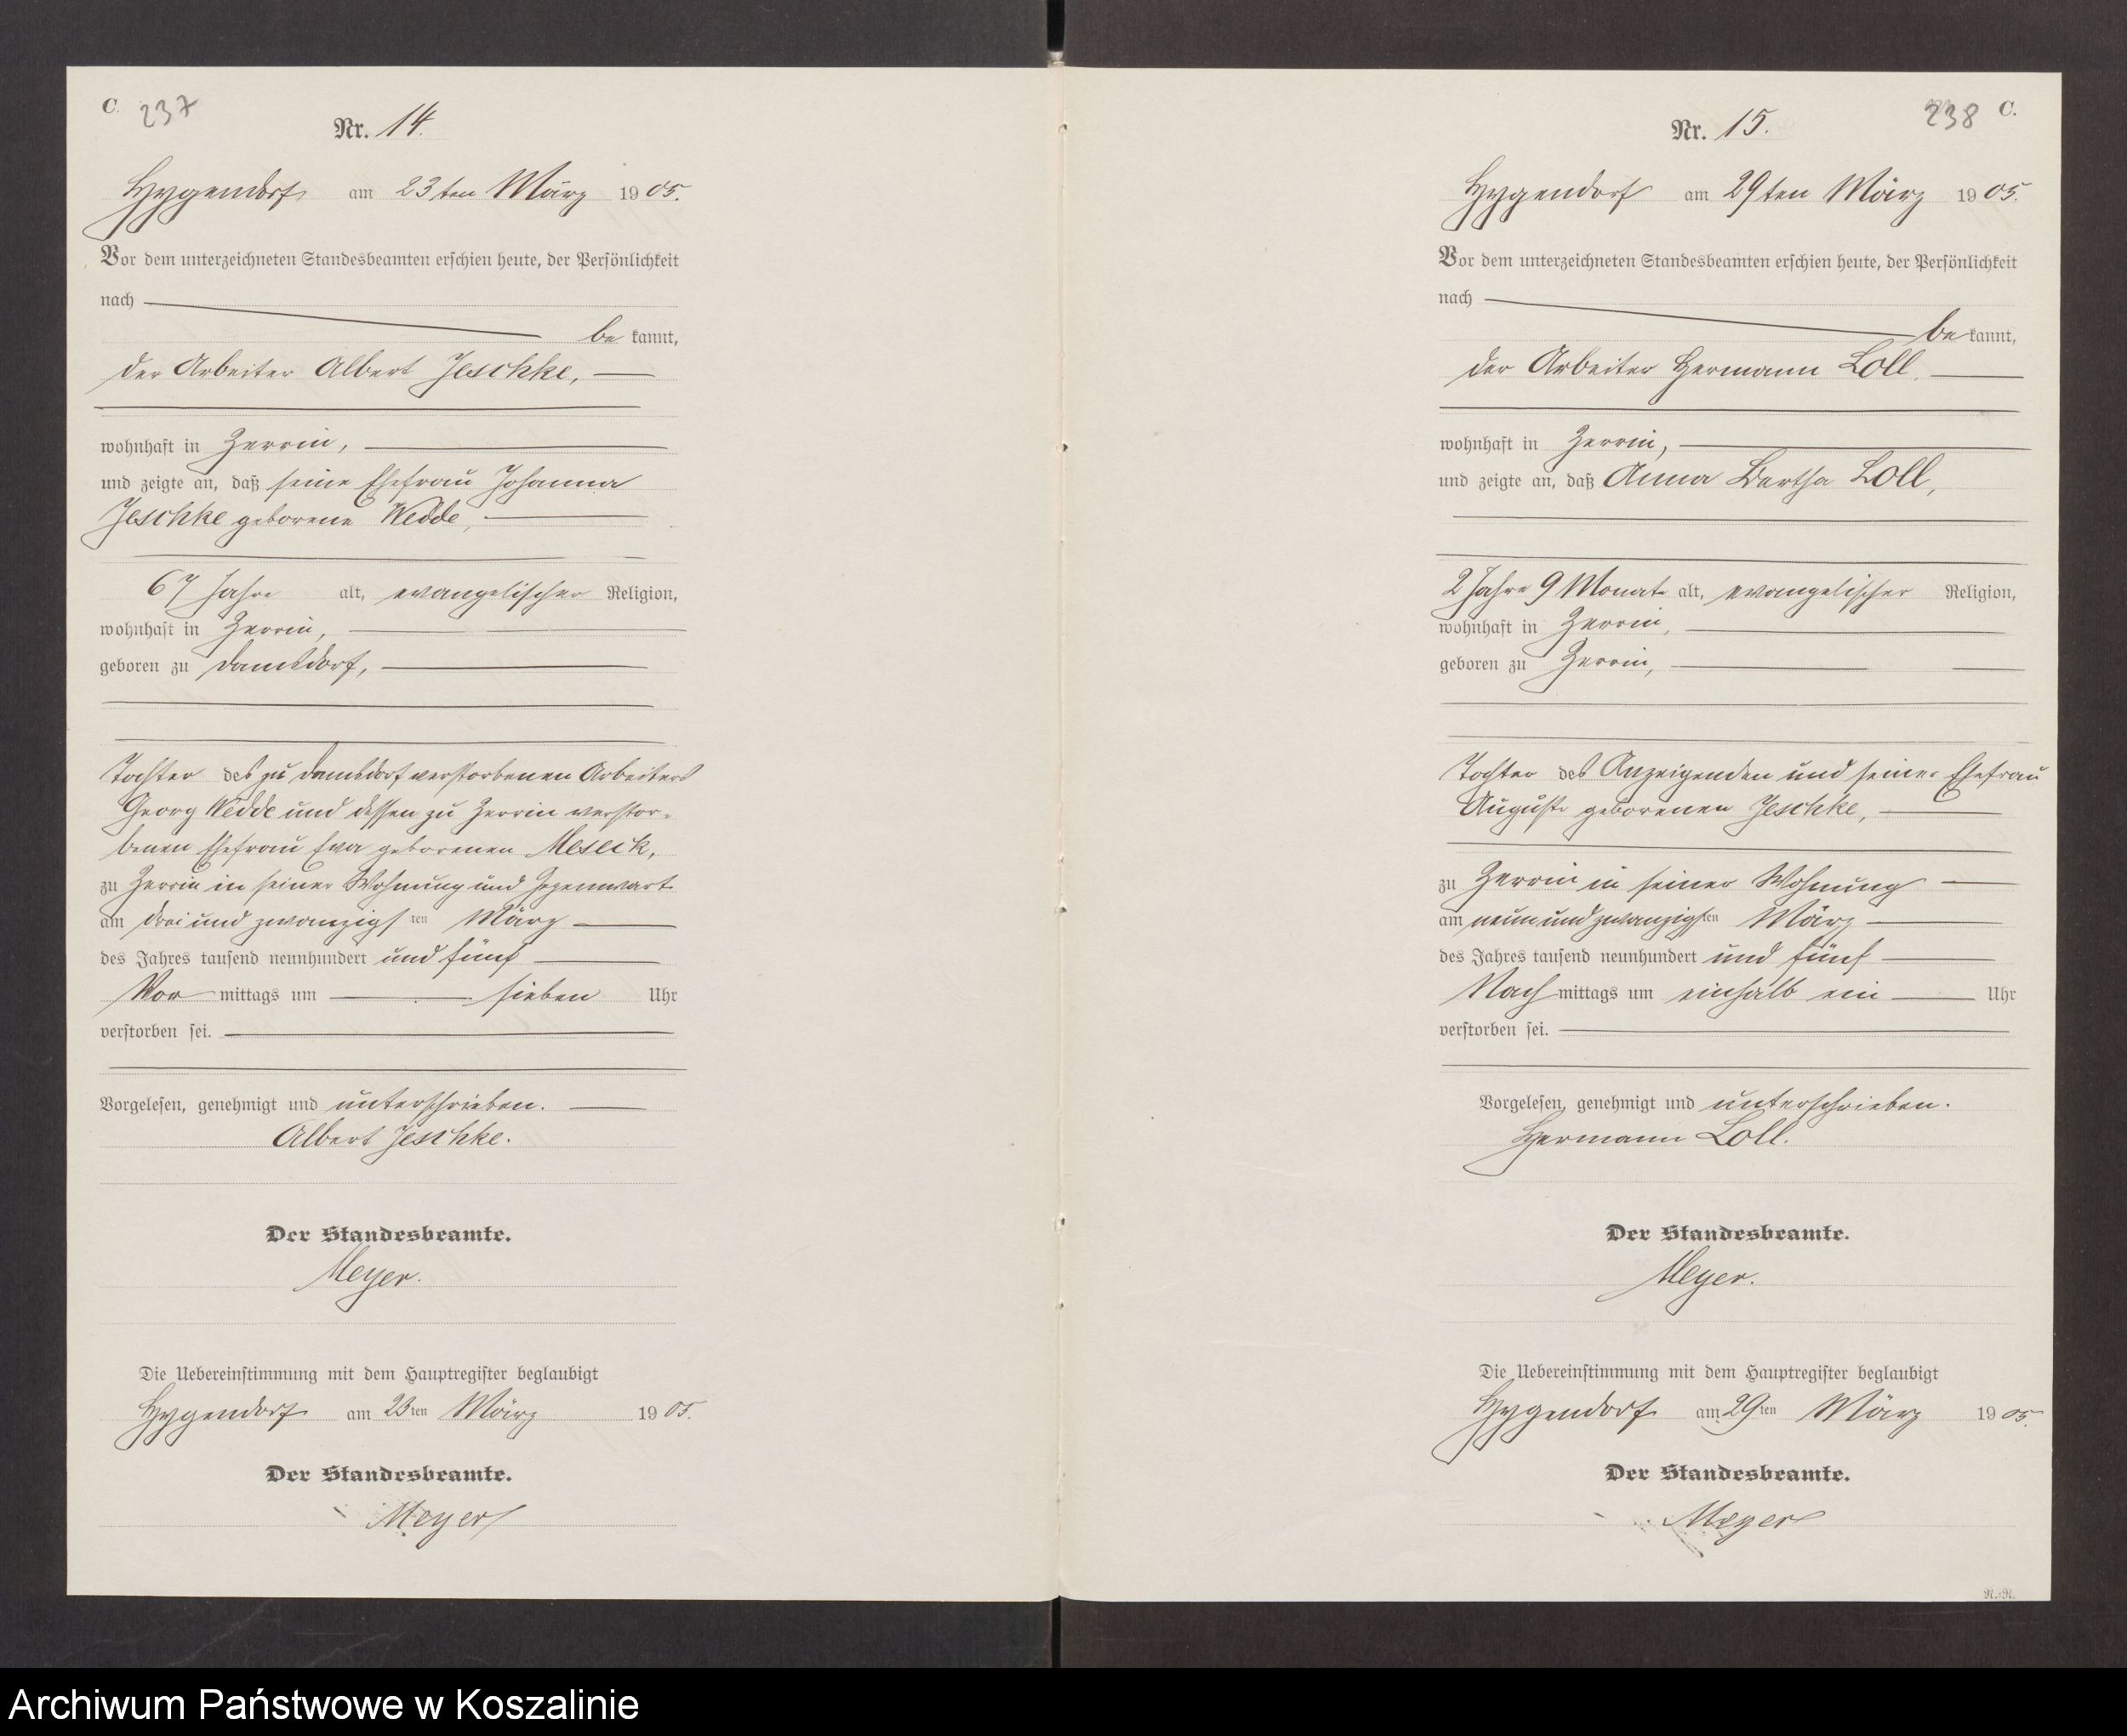 C. 237
Nr. 14.
Hygendorf am 23ten März 1905.
Vor dem unterzeichneten Standesbeamten erschien heute, der Persönlichkeit
nach
be kannt,
der Arbeiter Albert Jeschke,
wohnhaft in Zerrin,
und zeigte an, daß seine Ehefrau Johanna
Jeschke geborene Wedde,
67 Jahre alt, evangelischer Religion,
wohnhaft in Zerrin,
geboren zu Damsdorf,
Tochter des zu Damsdorf verstorbenen Arbeiters
Georg Wedde und dessen zu Zerrin verstor-
benen Ehefrau Eva geborenen Meseck,
zu Zerrin in seiner Wohnung und Gegenwart
am drei und zwanzigsten März
des Jahres tausend neunhundert und fünf
Vor mittags um sieben Uhr
verstorben sei.
Vorgelesen, genehmigt und unterschrieben.
Albert Jeschke.
Der Standesbeamte.
Meyer.
Die Uebereinstimmung mit dem Hauptregister beglaubigt
Hygendorf am 23ten März 1905.
Der Standesbeamte.
Meyer
238 C.
Nr. 15.
Hygendorf am 29ten März 1905.
Vor dem unterzeichneten Standesbeamten erschien heute, der Persönlichkeit
nach
be kannt,
der Arbeiter Hermann Loll,
wohnhaft in Zerrin,
und zeigte an, daß Anna Bertha Loll,
2 Jahre 9 Monate alt, evangelischer Religion,
wohnhaft in Zerrin,
geboren zu Zerrin,
Tochter des Anzeigenden und seiner Ehefrau
Auguste geborenen Jeschke,
zu Zerrin in seiner Wohnung
am neunundzwanzigsten März
des Jahres tausend neunhundert und fünf
Nach mittags um einhalb ein Uhr
verstorben sei.
Vorgelesen, genehmigt und unterschrieben.
Hermann Loll.
Der Standesbeamte.
Meyer.
Die Uebereinstimmung mit dem Hauptregister beglaubigt
Hygendorf am 29ten März 1905.
Der Standesbeamte.
Meyer
Archiwum Państwowe w Koszalinie